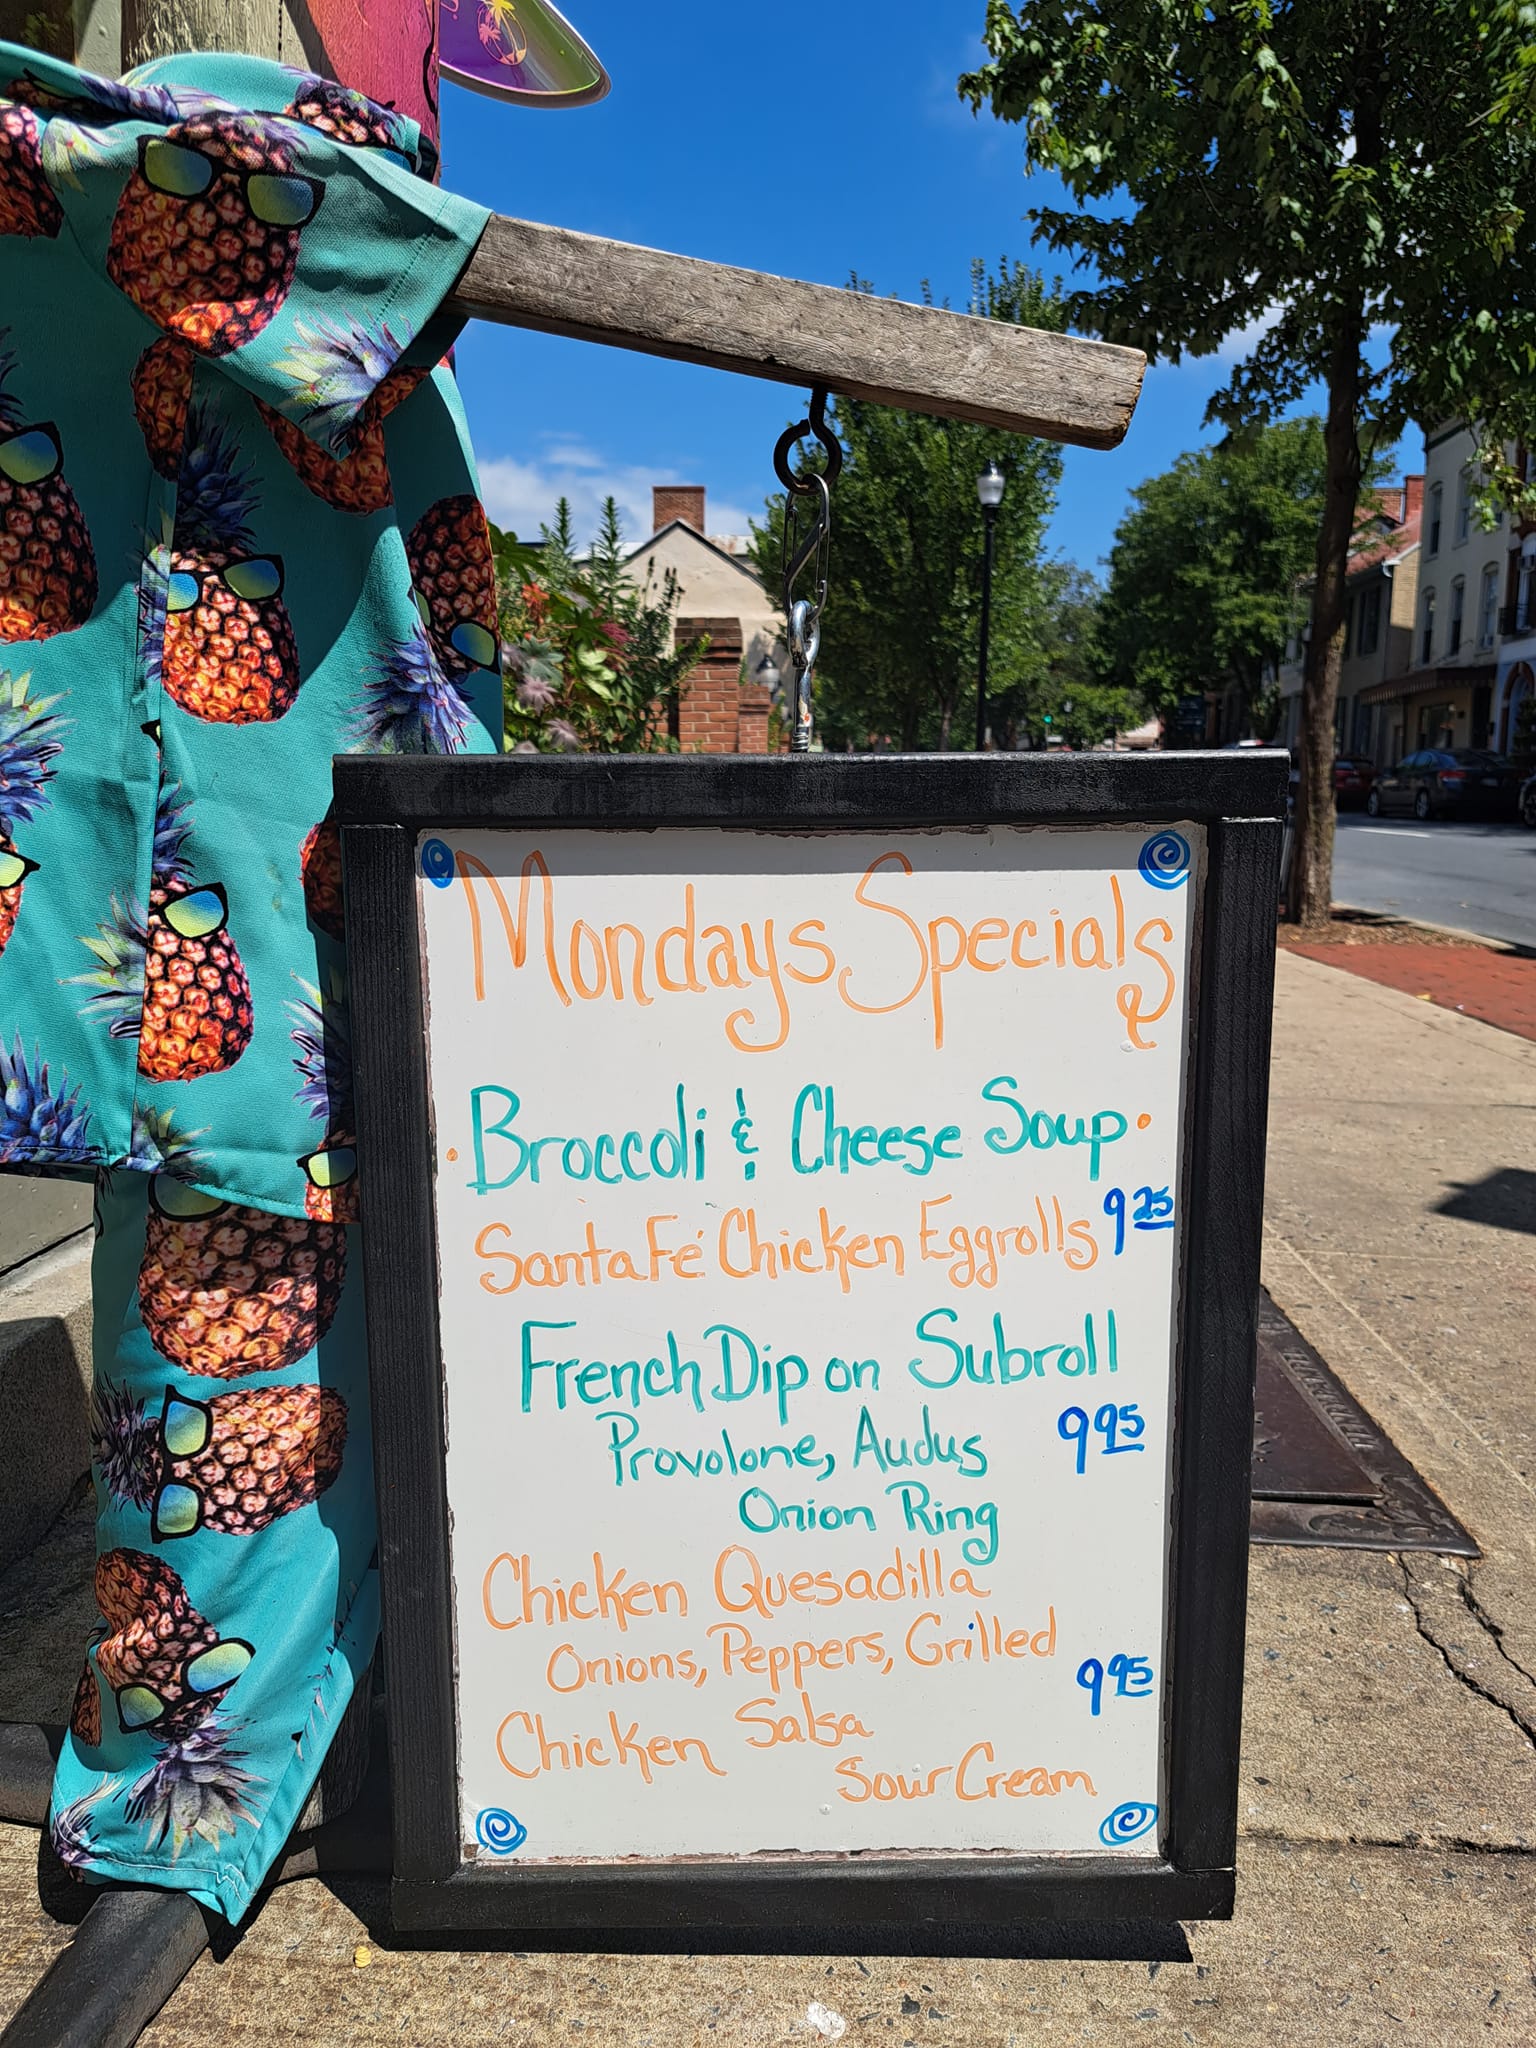 Mondays Specials
Broccoli & Cheese Soup
Santa Fé Chicken Eggrolls 9.25
French Dip on Subroll
Provolone, Audus 9.95
Onion Ring
Chicken Quesadilla
Onions, Peppers, Grilled
Chicken Salsa 9.95
Sour Cream